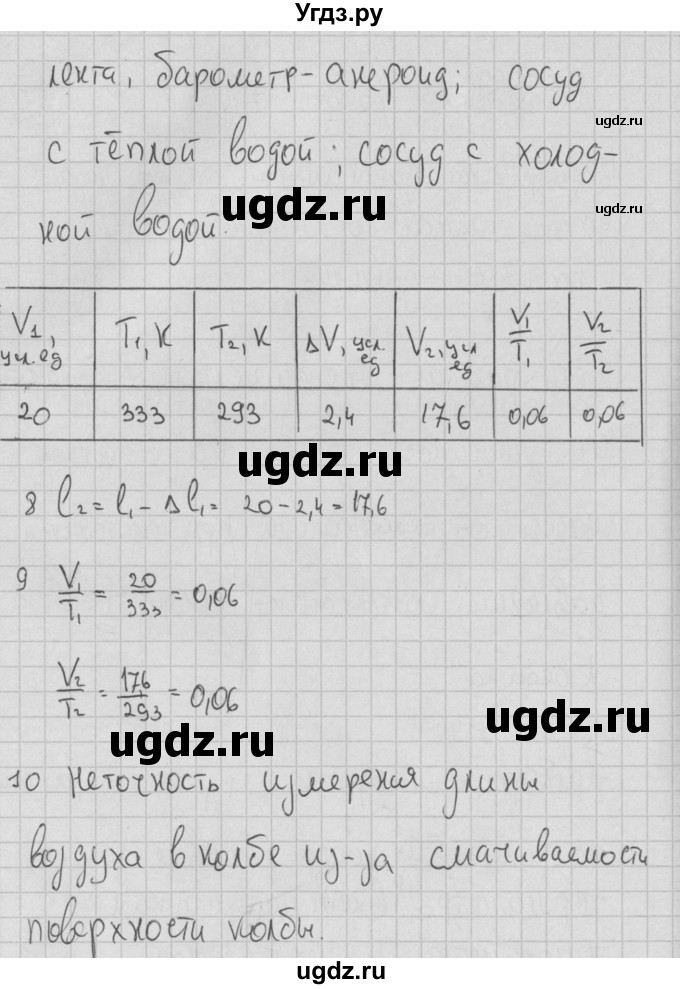 Угдз.ру
лента, барометр-анероид; сосуд
ugdz.ru
с тёплой водой; сосуд с холод-
ugdz.ru
ugdz.ru
ной водой.
V₁, усл. ед | T₁, К | T₂, К | ΔV, усл ед | V₂, усл ед | V₁/T₁ | V₂/T₂
20 | 333 | 293 | 2,4 | 17,6 | 0,06 | 0,06
ugdz.ru
8 l₂ = l₁ - Δl₁ = 20 - 2,4 = 17,6
9 V₁/T₁ = 20/333 = 0,06
V₂/T₂ = 17,6/293 = 0,06
ugdz.ru
ugdz.ru
10 Неточность измерения длины
воздуха в колбе из-за смачиваемости
поверхности колбы.
ugdz.ru